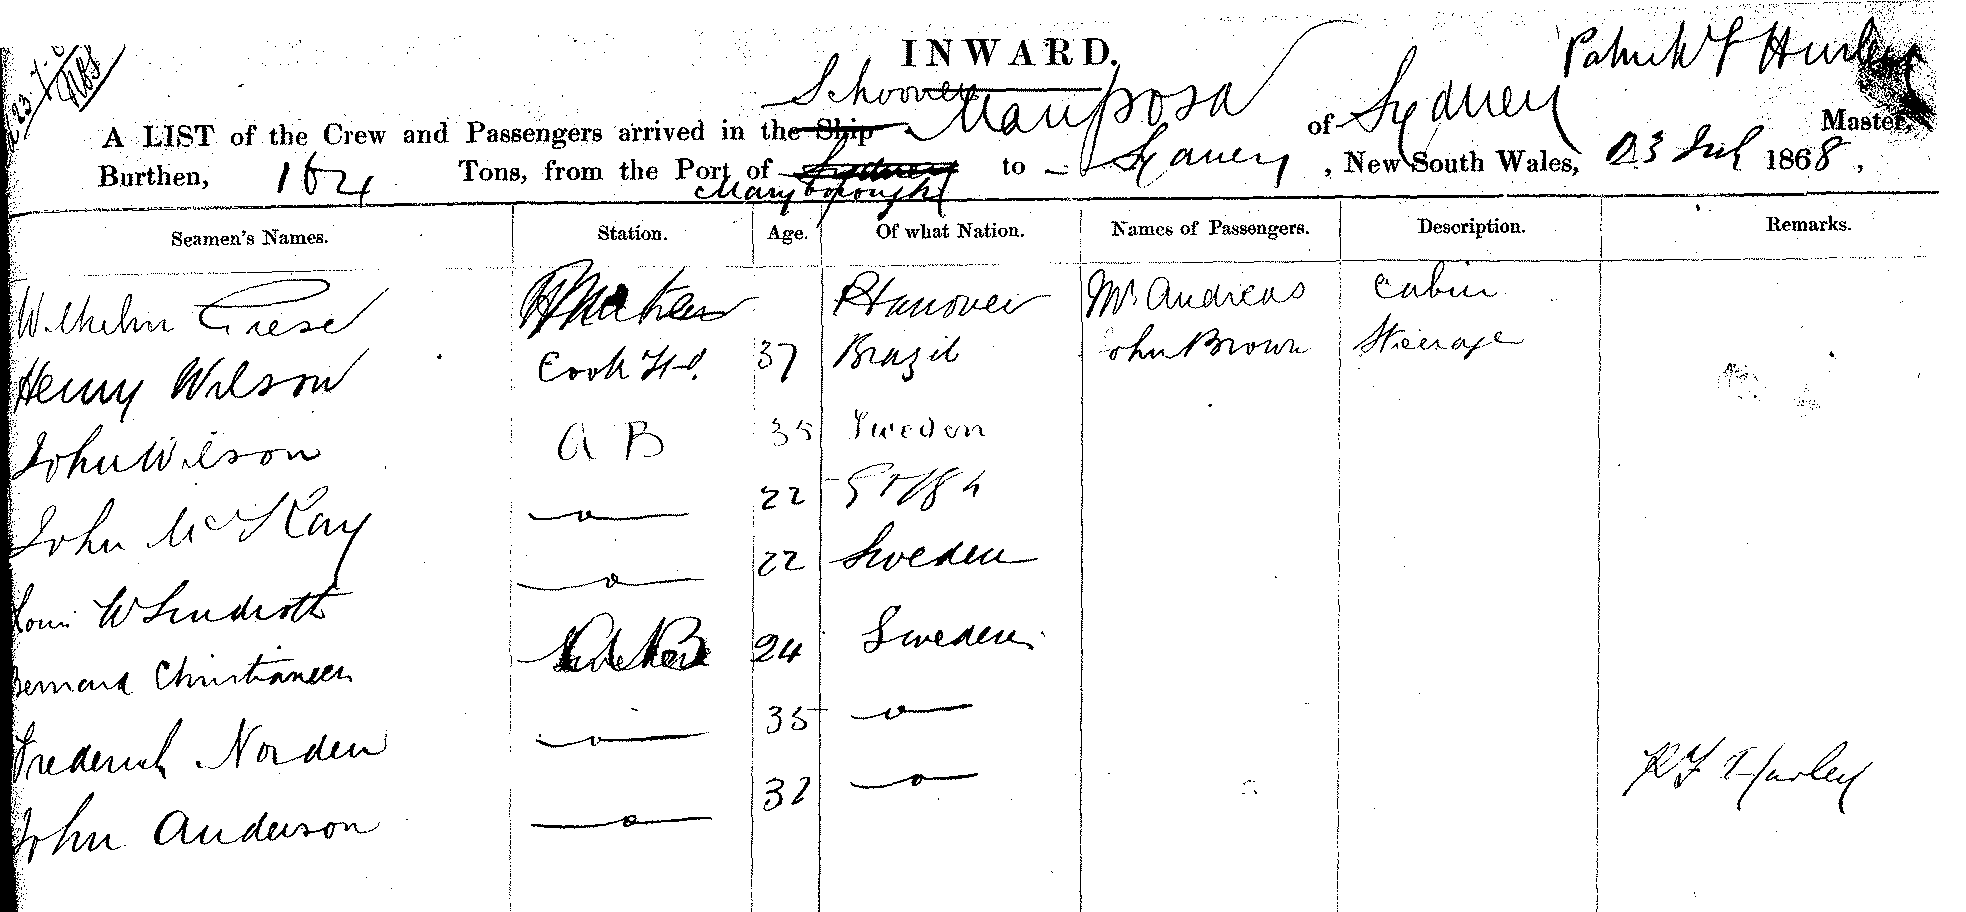 INWARD.
Schooner Mariposa of Sydney Patrick F Hurley
A LIST of the Crew and Passengers arrived in the Ship Master,
Burthen, 164 Tons, from the Port of Sydney to Sydney, New South Wales, 23 July 1868,
Maryborough
Seamen's Names. Station. Age. Of what Nation. Names of Passengers. Description. Remarks.
Wilhelm Hanover Mr Andreas Cabin
Henry Wilson Cook 37 Brazil John Brown Steerage
John Wilson A B 35 Sweden
John McKay — o — 22
Louis W Lindroth — o — 22 Sweden
Bernard Christiansen A B 24 Sweden
Frederick Norden — o — 35 — o —
John Anderson — o — 32 — o —
P F Hurley